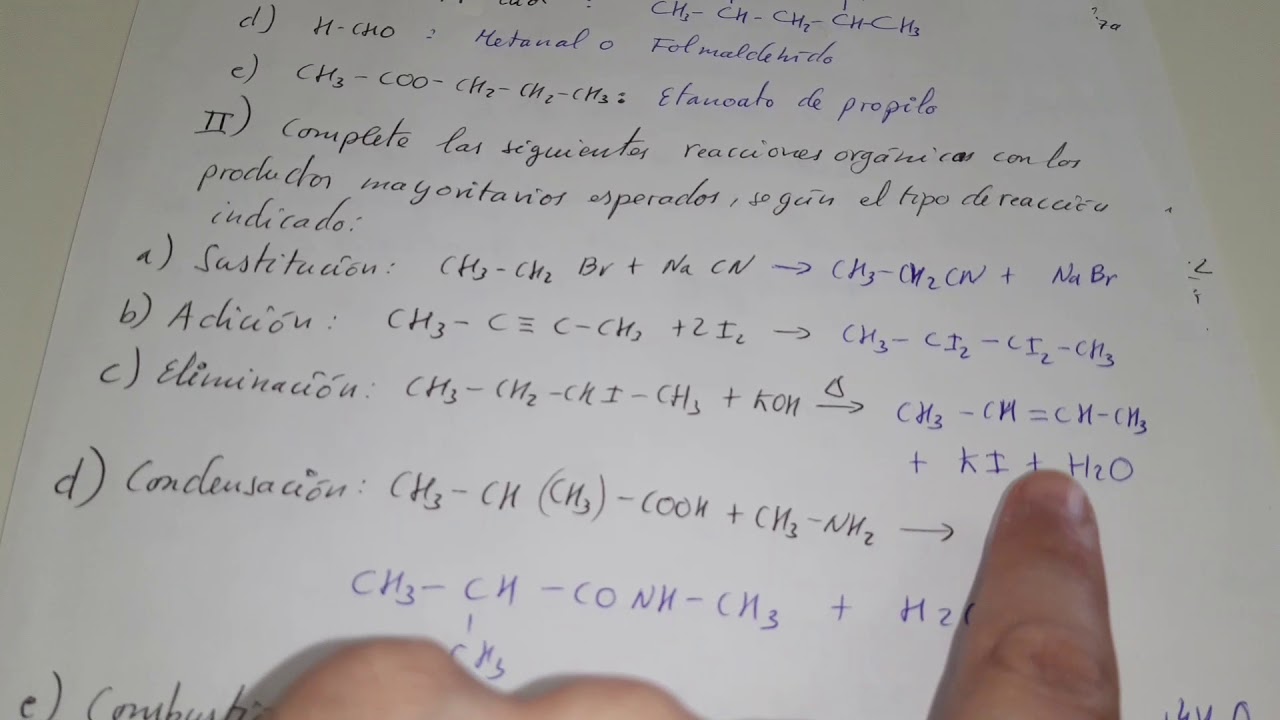 CH3 - CH - CH2 - CH-CH3
d) H-CHO : Metanal o Folmaldehido
e) CH3 - COO - CH2 - CH2 - CH3: Etanoato de propilo
II) Complete las siguientes reacciones orgánicas con los
productos mayoritarios esperados, según el tipo de reacción
indicado:
a) Sustitución: CH3-CH2 Br + Na CN → CH3-CH2CN + NaBr
b) Adición: CH3 - C ≡ C - CH3 + 2 I2 → CH3 - CI2 - CI2 - CH3
c) Eliminación: CH3 - CH2 - CHI - CH3 + KOH Δ→ CH3 - CH = CH - CH3
+ KI + H2O
d) Condensación: CH3 - CH (CH3) - COOH + CH3 - NH2 →
CH3 - CH - CO NH - CH3 + H2
CH3
e)